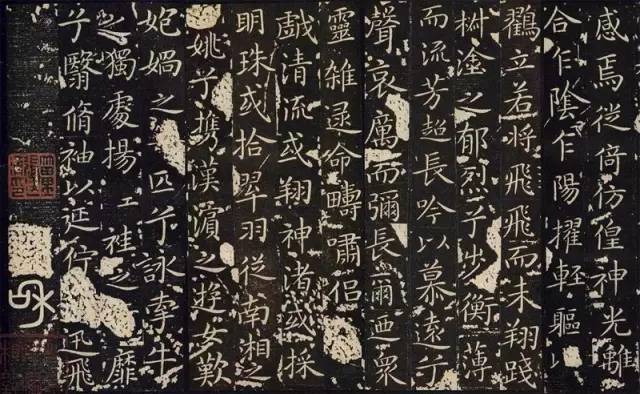 感焉徙倚仿偟神光離
合乍陰乍陽擢輕軀以
鸛立若將飛飛而未翔踐
椒塗之郁烈兮步衡薄
而流芳超長吟以慕遠兮
聲哀厲而彌長爾迺眾
靈雜遝命疇嘯侶
戲清流或翔神渚或採
明珠或拾翠羽從南湘之
姚兮攜漢濱之遊女歎
媧之匹兮詠牽牛
之獨處揚袿之靡
兮翳脩袖以延佇迅飛